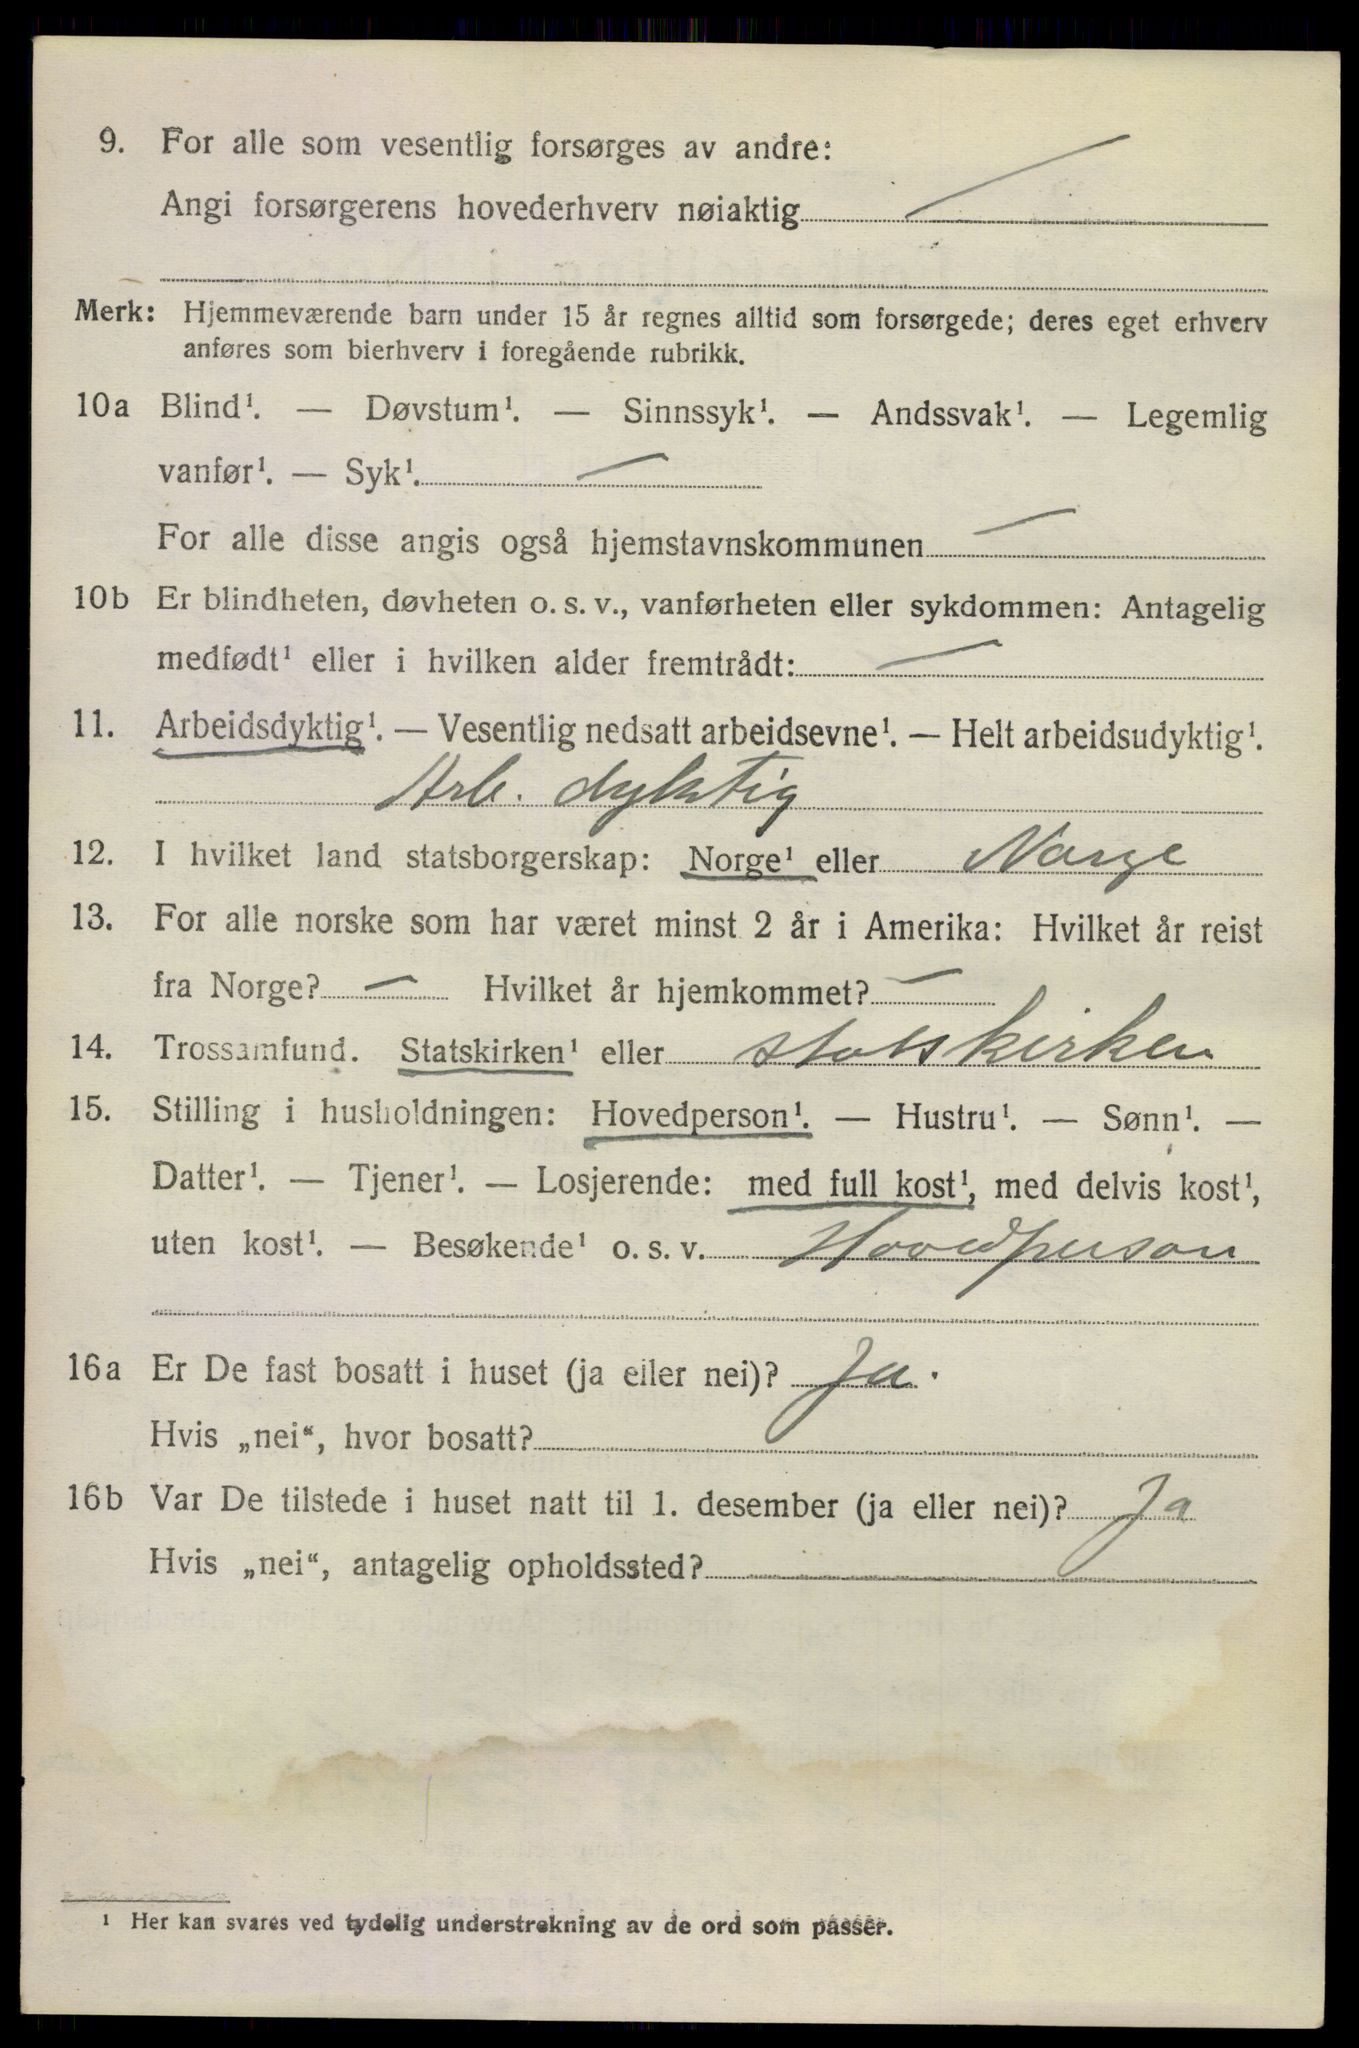 9. For alle som vesentlig forsørges av andre:
Angi forsørgerens hovederhverv nøiaktig —
Merk: Hjemmeværende barn under 15 år regnes alltid som forsørgede; deres eget erhverv
anføres som bierhverv i foregående rubrikk.
10a Blind¹. — Døvstum¹. — Sinnssyk¹. — Andssvak¹. — Legemlig
vanfør¹. — Syk¹. —
For alle disse angis også hjemstavnskommunen —
10b Er blindheten, døvheten o. s. v., vanførheten eller sykdommen: Antagelig
medfødt¹ eller i hvilken alder fremtrådt: —
11. Arbeidsdyktig¹. — Vesentlig nedsatt arbeidsevne¹. — Helt arbeidsudyktig¹.
Arb. dyktig
12. I hvilket land statsborgerskap: Norge¹ eller Norge
13. For alle norske som har været minst 2 år i Amerika: Hvilket år reist
fra Norge? — Hvilket år hjemkommet? —
14. Trossamfund. Statskirken¹ eller statskirken
15. Stilling i husholdningen: Hovedperson¹. — Hustru¹. — Sønn¹. —
Datter¹. — Tjener¹. — Losjerende: med full kost¹, med delvis kost¹,
uten kost¹. — Besøkende¹ o. s. v. Hovedperson
16a Er De fast bosatt i huset (ja eller nei)? Ja.
Hvis „nei“, hvor bosatt?
16b Var De tilstede i huset natt til 1. desember (ja eller nei)? Ja
Hvis „nei“, antagelig opholdssted?
¹ Her kan svares ved tydelig understrekning av de ord som passer.